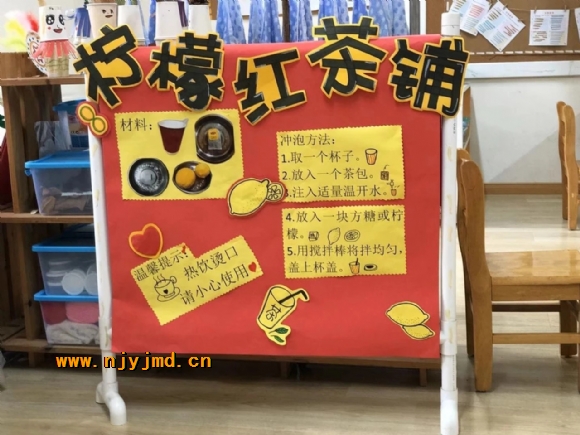 柠檬红茶铺
材料:
冲泡方法:
1.取一个杯子。
2.放入一个茶包。
3.注入适量温开水。
4.放入一块方糖或柠
檬。
5.用搅拌棒将拌均匀,
盖上杯盖。
温馨提示:
热饮烫口
请小心使用
www.njyjmd.cn